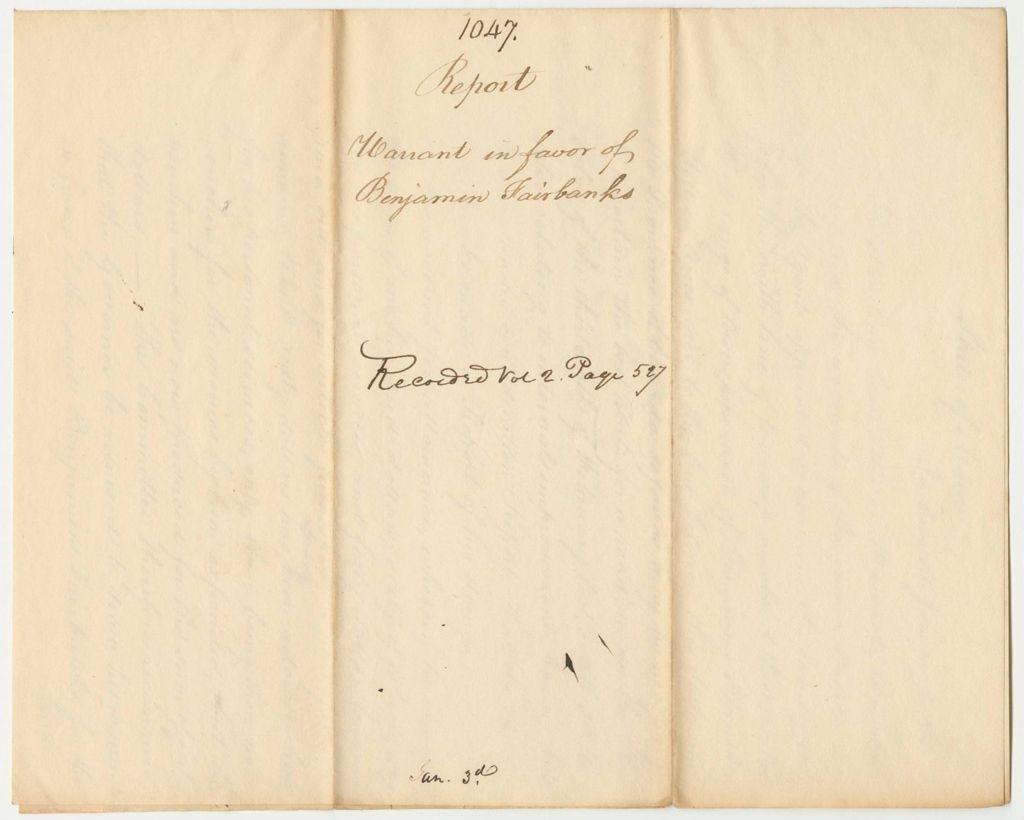 1047.
Report
Warrant in favor of
Benjamin Fairbanks
Recorded Vol 2. Page 527
Jan. 3d